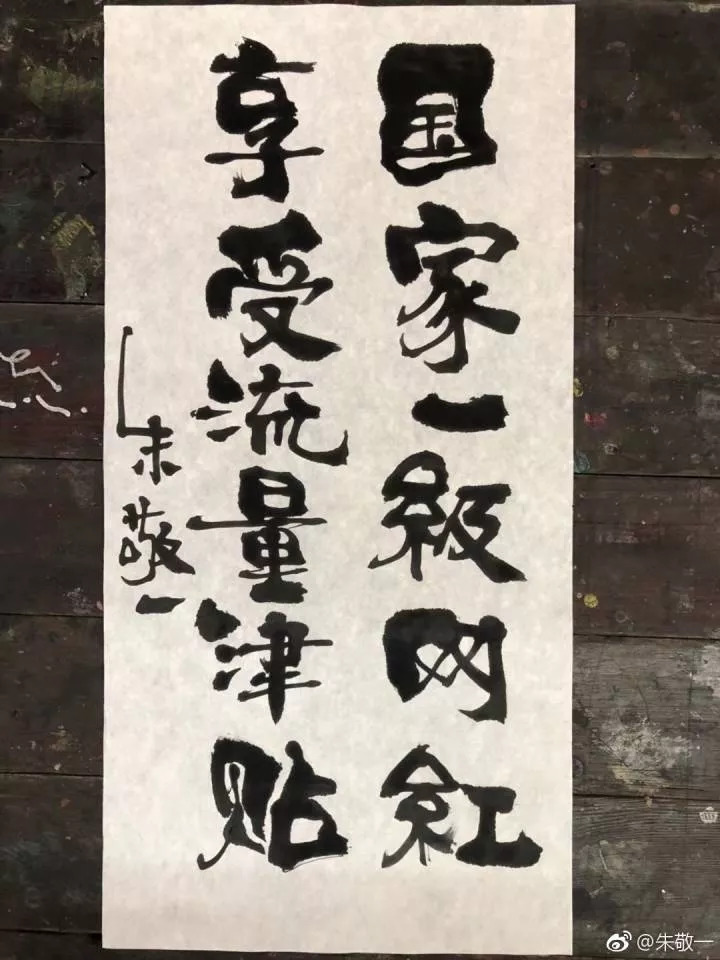 国家一级网红
享受流量津贴
朱敬一
@朱敬一